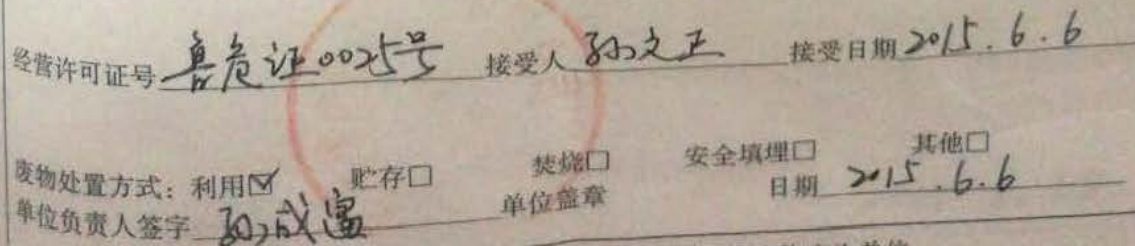 经营许可证号 鲁危证0025号 接受人 孙文正 接受日期 2015.6.6
废物处置方式:利用☑ 贮存□ 焚烧□ 安全填埋□ 其他□
单位负责人签字 孙成富 单位盖章 日期 2015.6.6